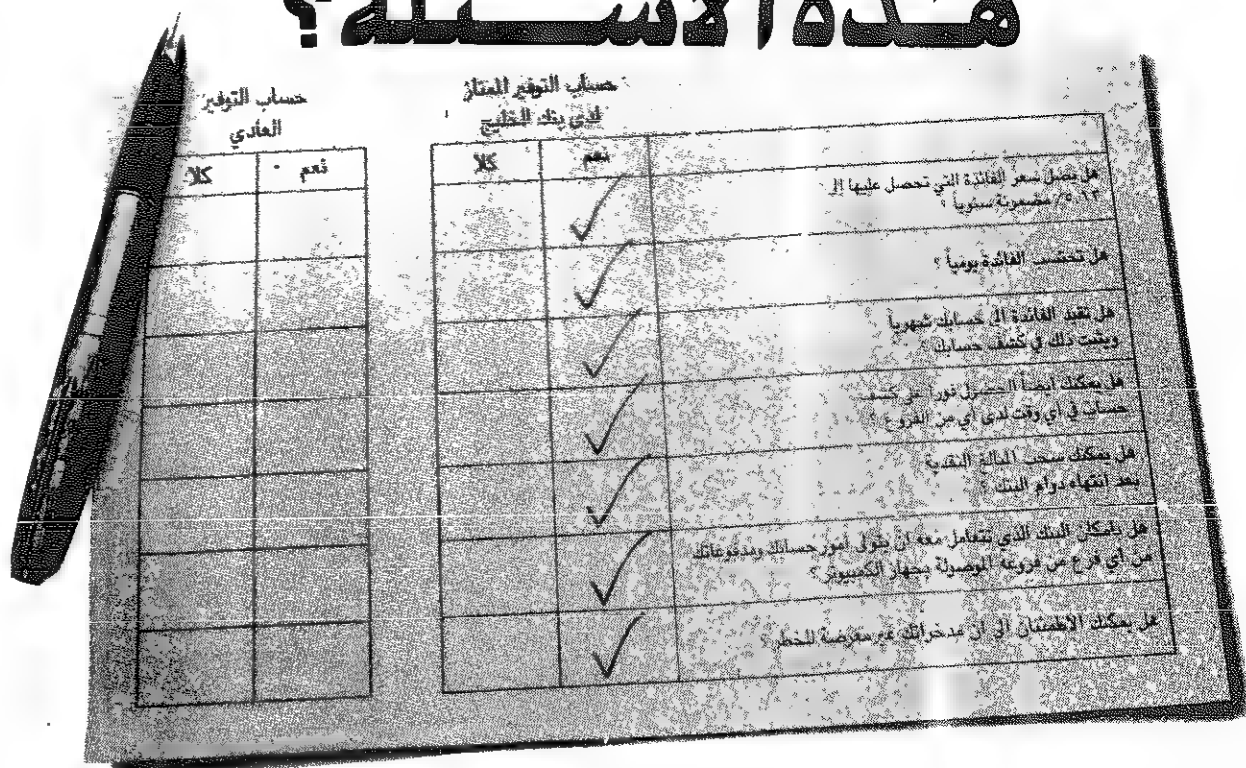 هذه الأسئلة؟
حساب التوفير الممتاز
لدى بنك الخليج
حساب التوفير
العادي
نعم
كلا
نعم
كلا
هل يصل سعر الفائدة التي تحصل عليها الى
مضمونة سنوياً ؟
هل تحتسب الفائدة يومياً ؟
هل تقيد الفائدة الى حسابك شهرياً
ويثبت ذلك في كشف حسابك ؟
هل يمكنك ايضاً الحصول فوراً على كشف
حساب في أي وقت لدى أي من الفروع ؟
هل يمكنك سحب المبالغ النقدية
بعد انتهاء دوام البنك ؟
هل بامكان البنك الذي تتعامل معه ان يتولى أمور حسابك ومدفوعاتك
من أي فرع من فروعه الموصولة بجهاز الكمبيوتر ؟
هل يمكنك الاطمئنان الى ان مدخراتك غير معرضة للخطر ؟